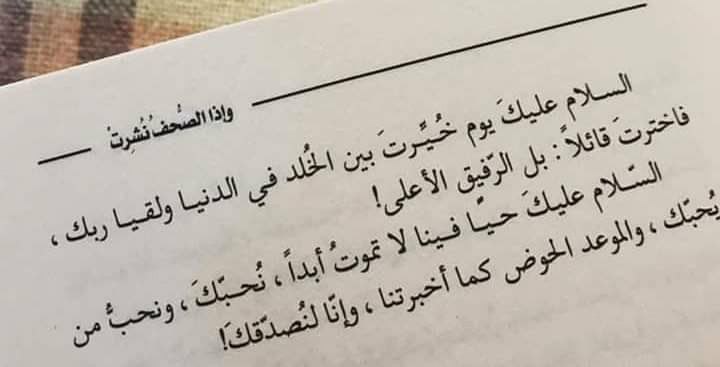 وإذا الصُّحفُ نُشِرتْ
السلام عليكَ يوم خُيِّرتَ بين الخُلد في الدنيا ولقيا ربك ،
فاخترتَ قائلاً : بل الرّفيق الأعلى !
السّلام عليكَ حيًّا فينا لا تموتُ أبداً ، نُحبّكَ ، ونحبُّ من
يُحبّك ، والموعد الحوض كما أخبرتنا ، وإنّا لنُصدّقكَ!